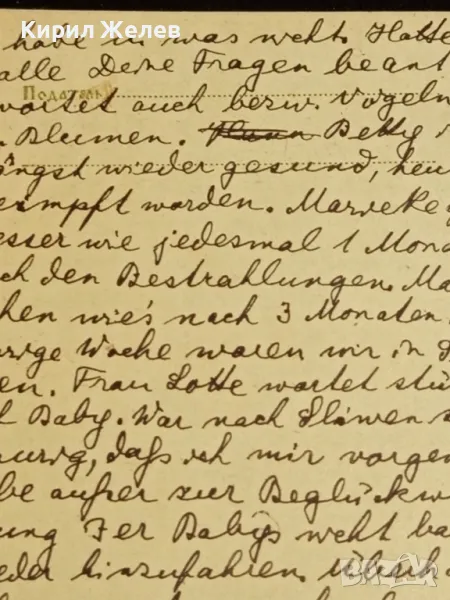 Кирил Желев
habe in was weht. Hatte
alle Deine Fragen beant
Податель
wortet auch bezw. Vögeln
. Blumen. Betty
ängst wieder gesund, heu
eimpft worden. Marieke
esser wie jedesmal 1 Mona
ch den Bestrahlungen. Ma
hen wie's nach 3 Monaten
rige Woche waren wir in
en. Frau Lotte wartet stü
Baby. War nach
aurig, daß ich mir vorgen
be außer zur Beglückw
ung Baby's weht ba
eder hinzufahren.
BAZAR